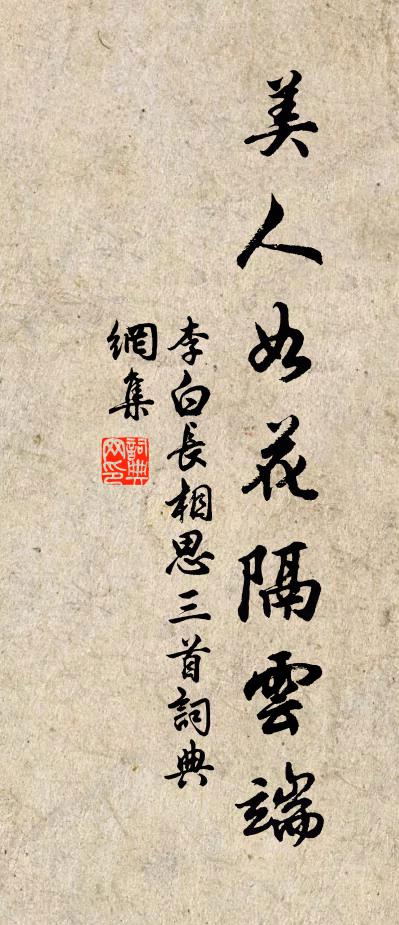 美人如花隔雲端
李白長相思三首詞典
網集
詞典
网印